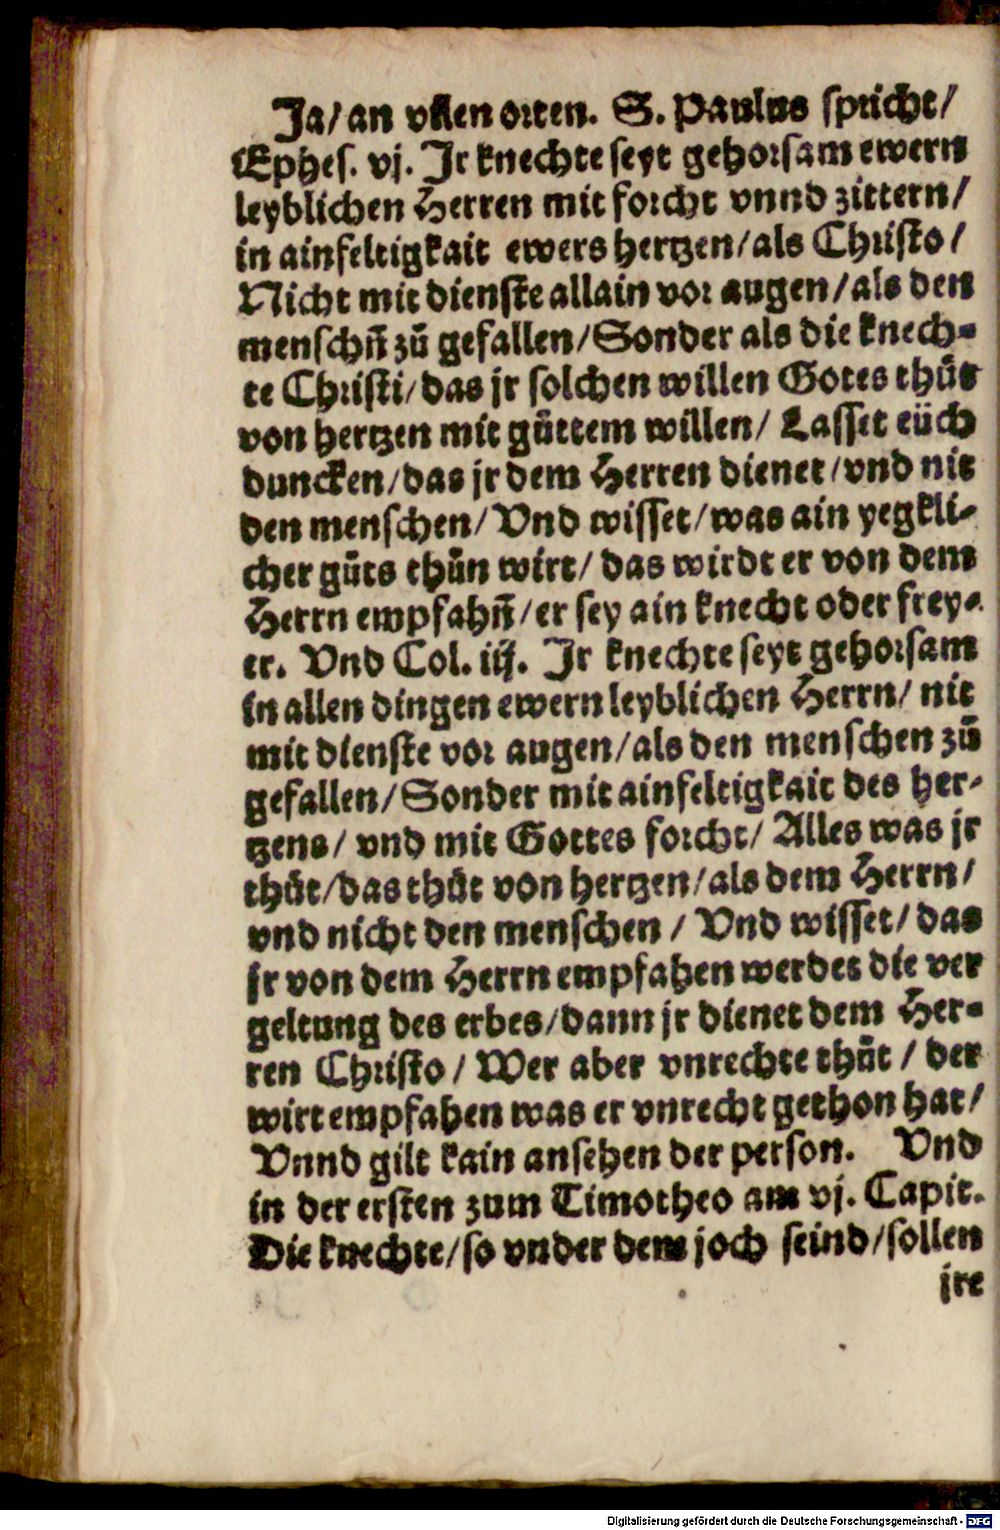 Ja/ an vilen orten. S. Paulus spricht/
Ephes. vj. Jr knechte seyt gehorsam ewern
leyblichen Herren mit forcht vnnd zittern/
in ainfeltigkait ewers hertzen/ als Christo/
Nicht mit dienste allain vor augen/ als den
menschn̄ zů gefallen/ Sonder als die knech-
te Christi/ das jr solchen willen Gotes thůt
von hertzen mit gůttem willen/ Lasset eüch
duncken/ das jr dem Herren dienet/ vnd nit
den menschen/ Vnd wisset/ was ain yegkli-
cher gůts thůn wirt/ das wirdt er von dem
Herrn empfahn̄/ er sey ain knecht oder frey-
er. Vnd Col. iij. Jr knechte seyt gehorsam
in allen dingen ewern leyblichen Herrn/ nit
mit dienste vor augen/ als den menschen zů
gefallen/ Sonder mit ainfeltigkait des her-
tzens/ vnd mit Gottes forcht/ Alles was jr
thůt/ das thůt von hertzen/ als dem Herrn/
vnd nicht den menschen/ Vnd wisset/ das
jr von dem Herrn empfahen werdet die ver
geltung des erbes/ dann jr dienet dem Her-
ren Christo/ Wer aber vnrechte thůt/ der
wirt empfahen was er vnrecht gethon hat/
Vnnd gilt kain ansehen der person. Vnd
in der ersten zum Timotheo am vj. Capit.
Die knechte/ so vnder dem joch seind/ sollen
jre
Digitalisierung gefördert durch die Deutsche Forschungsgemeinschaft - DFG